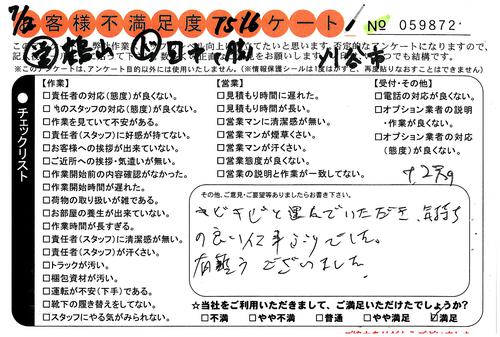 お客様不満足度アンケート！
No 059872
【作業】
□責任者の対応(態度)が良くない。
のスタッフの対応(態度)が良くない。
□作業を見ていて不安がある。
□責任者(スタッフ)に好感が持てない。
□お客様への挨拶が出来ていない。
□ご近所への挨拶・気遣いが無い。
□作業開始前の内容確認がなかった。
□作業開始時間が遅れた。
□荷物の取り扱いが雑である。
□お部屋の養生が出来ていない。
□作業時間が長すぎる。
□責任者(スタッフ)に清潔感が無い。
□責任者(スタッフ)が汗くさい。
□トラックが汚い。
□梱包資材が汚い。
□運転が不安(下手)である。
□靴下の履き替えをしてない。
□スタッフにやる気がみられない。
【営業】
□見積もり時間に遅れた。
□見積もり時間が長い。
□営業マンに清潔感が無い。
□営業マンが煙草くさい。
□営業マンが汗くさい。
□営業態度が良くない。
□営業の説明と作業が一致してない。
【受付・その他】
□電話の対応が良くない。
□オプション業者の説明
・作業が良くない。
□オプション業者の対応
(態度)が良くない。
●チェックリスト
その他、ご意見・ご要望等ありましたらお書き下さい。
きびきびと運んでいただき、気持ち
の良い仕事ぶりでした。
有難うございました。
☆当社をご利用いただきまして、ご満足いただけたでしょうか？
□不満 □やや不満 □普通 □やや満足 ☑満足